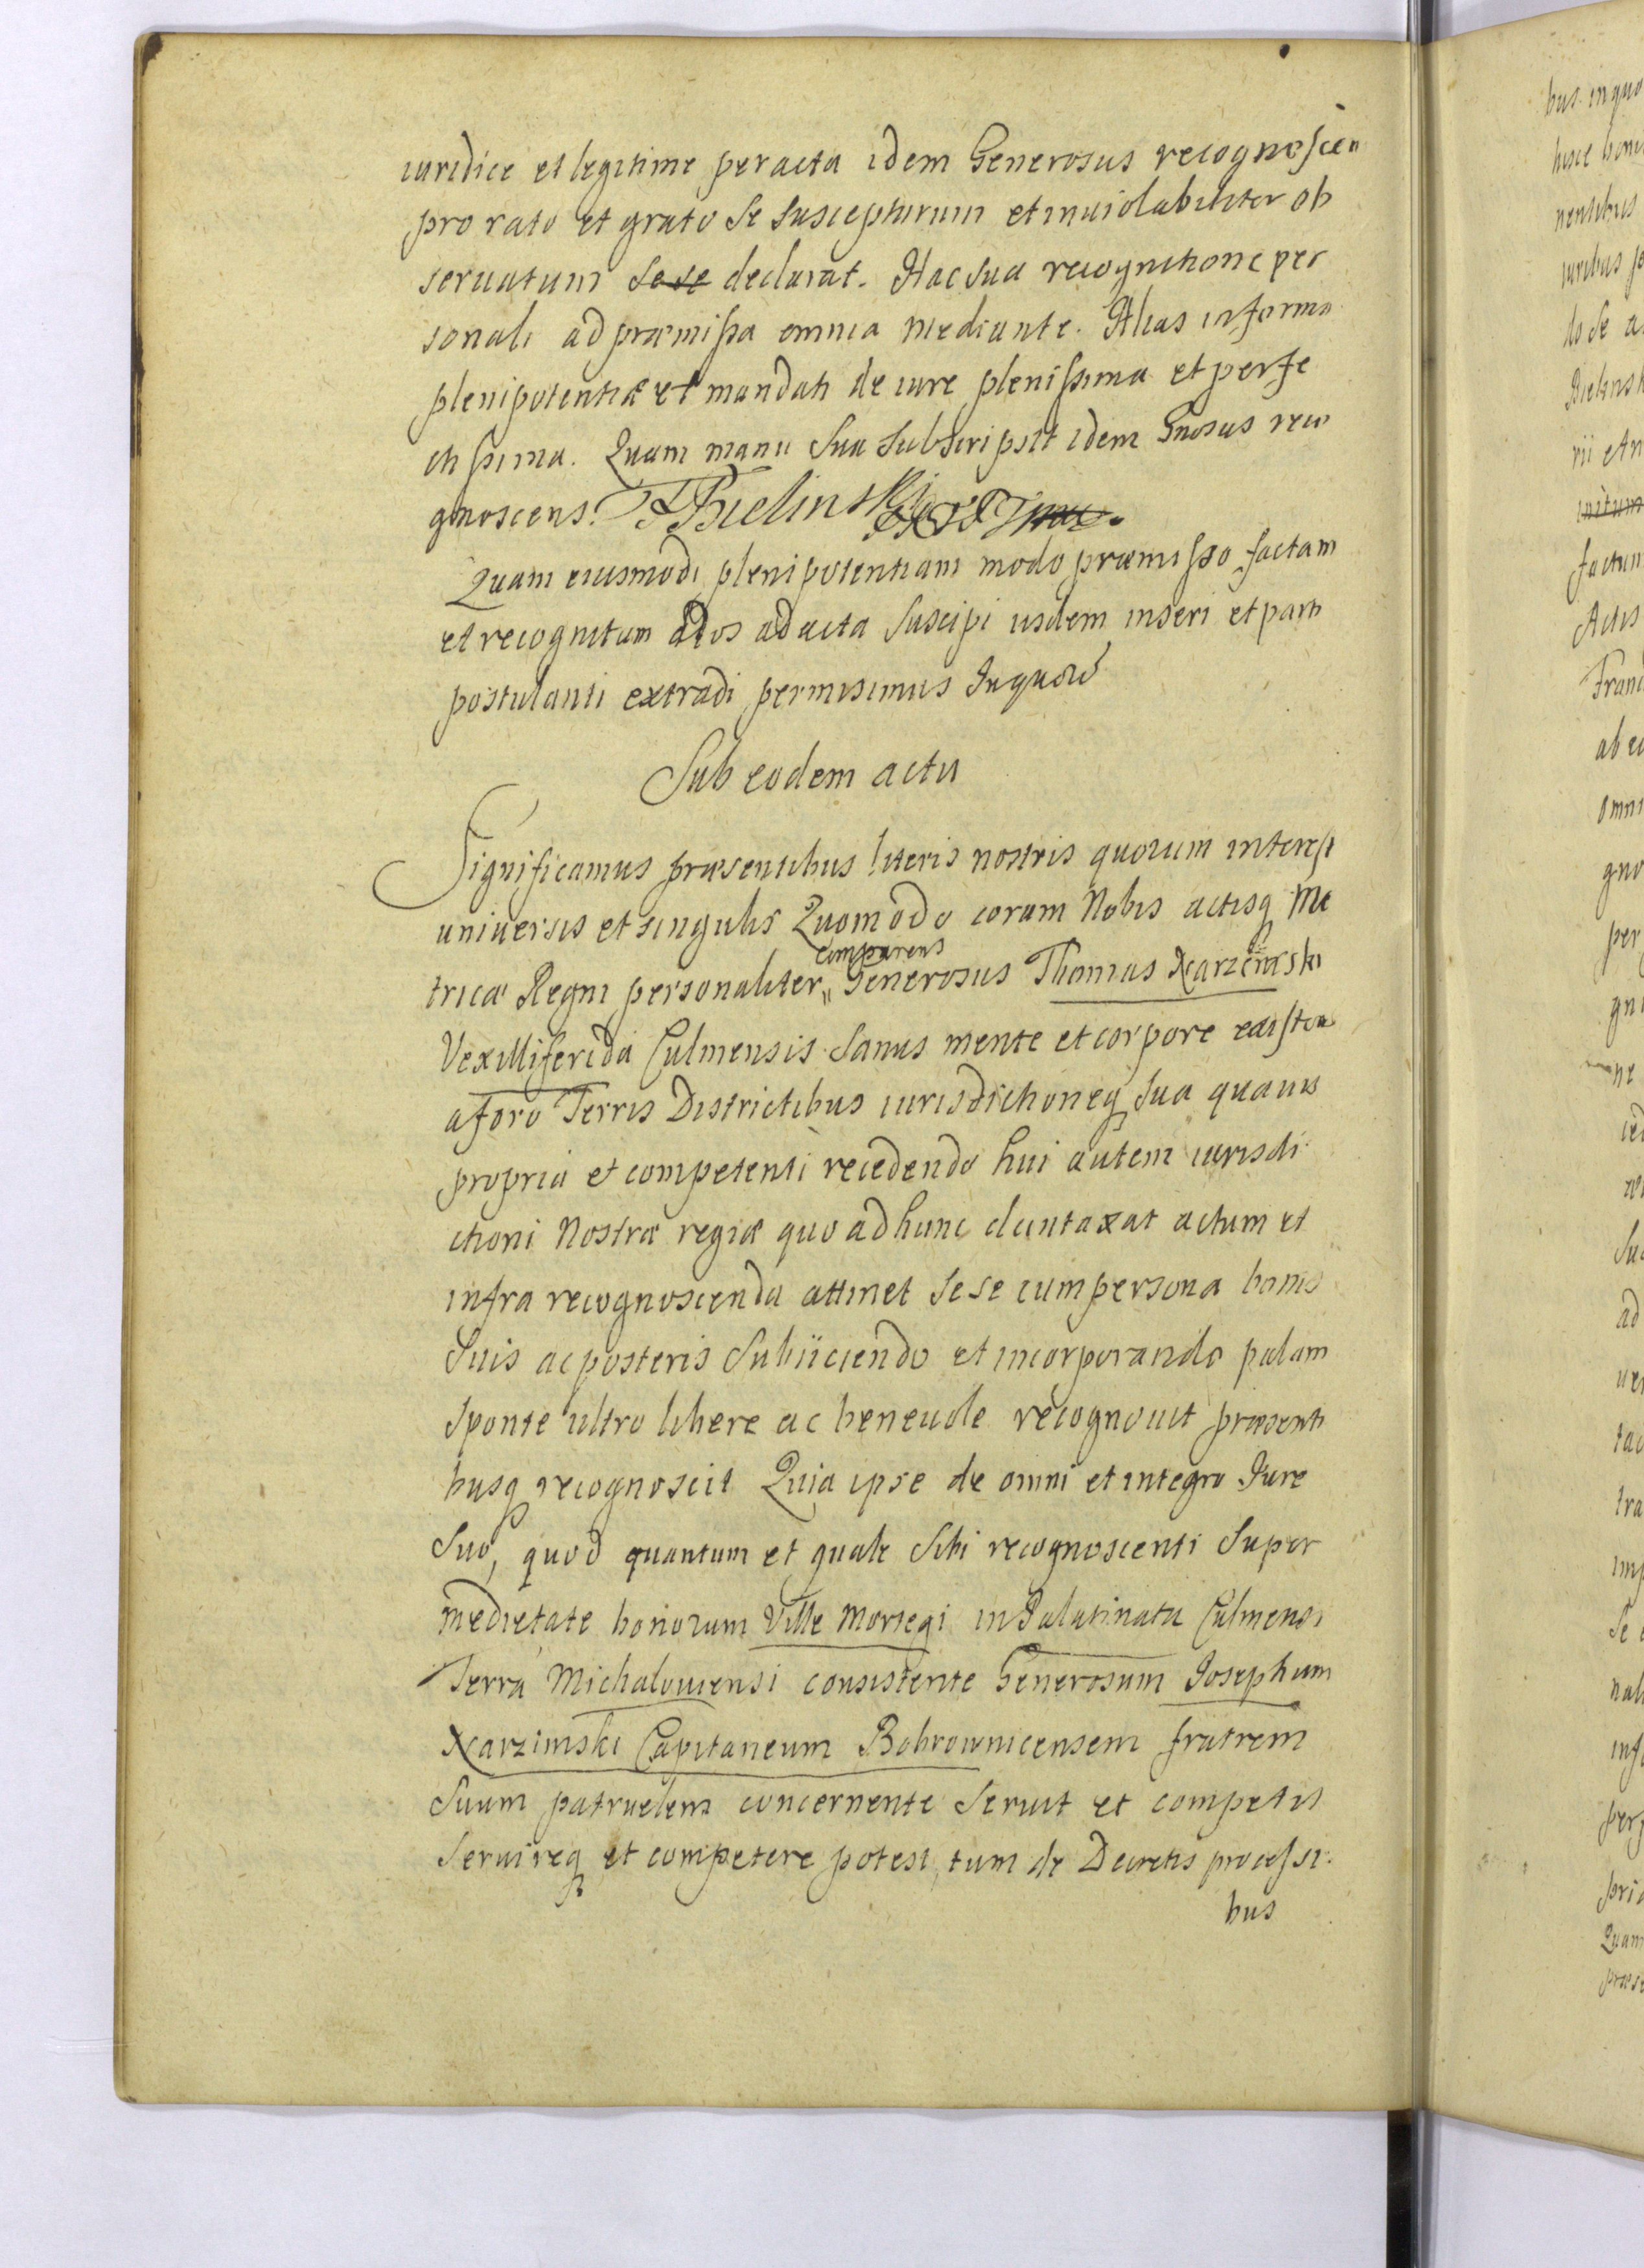 iuridice et legitime peracta idem Generosus recognoscen
pro rato et grato se suscepturum et inuiolabiliter ob
seruatum sese declarat. Hac sua recognitione per
sonali ad præmissa omnia mediante. Alias in forma
plenipotentiæ et mandati de iure plenissima et perfe
ctissima. Quam manu sua subscripsit idem Gnosus reco
gnoscens. F Bielinski
Quam eiusmodi plenipotentiam modo præmisso factam
et recognitam Nos ad acta suscipi iisdem inseri et parti
postulanti extradi permisimus Inquorū
Sub eodem actu
Significamus præsentibus literis nostris quorum interest
universis et singulis Quomodo coram Nobis actisq Me
comparens
tricæ Regni personaliter " Generosus Thomas Narzimski
Vexilliferida Culmensis sanus mente et corpore existen
a foro Terris Districtibus iurisdictioneq sua quauis
propria et competenti recedendo hui autem iurisdi
ctioni Nostræ regiæ quo ad hunc duntaxat actum et
infra recognoscenda attinet sese cum persona bonis
suis ac posteris subiiciendo et incorporando palam
sponte ultro libere ac beneuole recognouit præsenti
busq recognoscit Quia ipse de omni et integro Iure
suo, quod quantum et quale sibi recognoscenti super
medietate bonorum Ville Mortegi in Palatinatu Culmensi
Terra Michalouiensi consistente Generosum Iosephum
Narzimski Capitaneum Bobrownicensem fratrem
suum patruelem concernente seruit et competit
seruireq et competere potest, tum de Decretis processi
bus